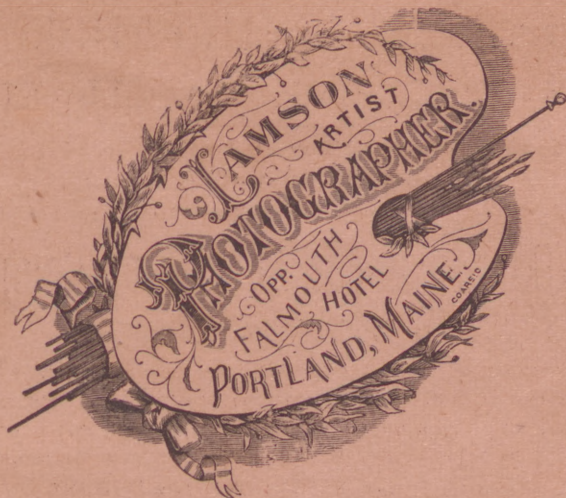 LAMSON
ARTIST
PHOTOGRAPHER.
OPP.
FALMOUTH
HOTEL
PORTLAND, MAINE.